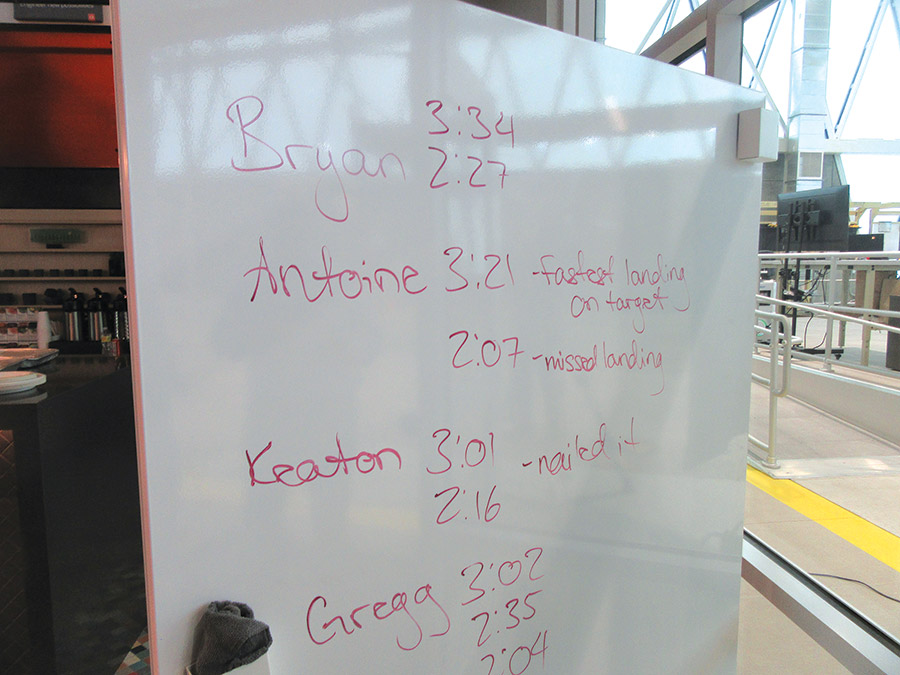 Bryan 3:34
2:27
Antoine 3:21 - fastest landing
on target
2:07 - missed landing
Keaton 3:01 - nailed it
2:16
Gregg 3:02
2:35
2:04